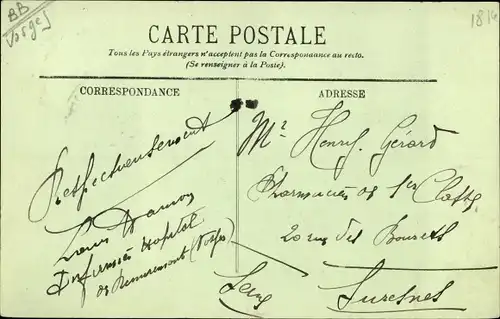 BB
Vosges
1816
CARTE POSTALE
Tous les Pays étrangers n'acceptent pas la Correspondance au recto.
(Se renseigner à la Poste).
CORRESPONDANCE
Respectueusement
Louis
Infirmier Hopital
de Remiremont (Vosges)
ADRESSE
Mr Henry Gérard
Pharmacien de 1ère Classe
20 rue des
Suresnes
Seine